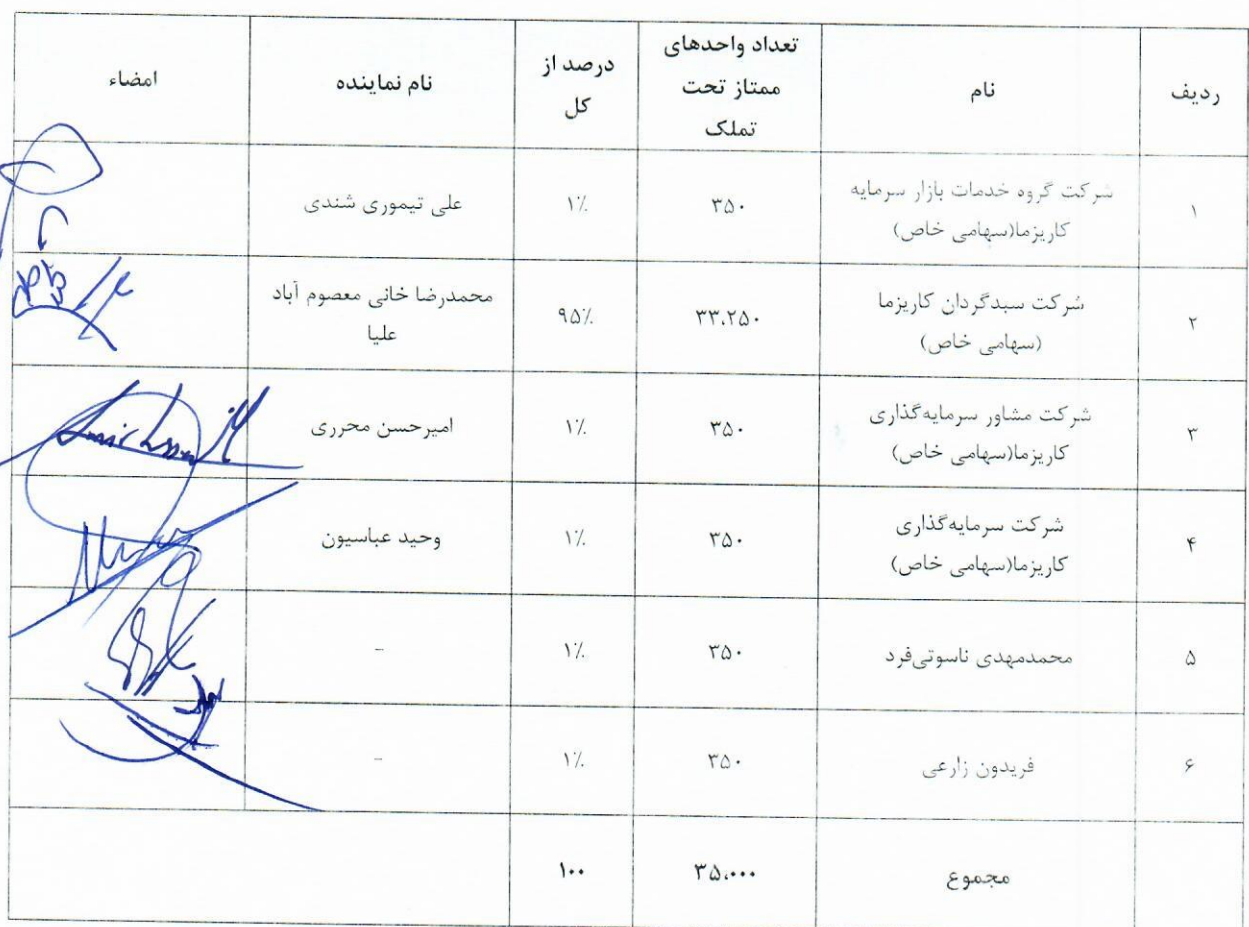 ردیف
نام
تعداد واحدهای
ممتاز تحت
تملک
درصد از
کل
نام نماینده
امضاء
۱
شرکت گروه خدمات بازار سرمایه
کاریزما(سهامی خاص)
۳۵۰
۱٪
علی تیموری شندی
۲
شرکت سبدگردان کاریزما
(سهامی خاص)
۳۳،۲۵۰
۹۵٪
محمدرضا خانی معصوم آباد
علیا
۳
شرکت مشاور سرمایه‌گذاری
کاریزما(سهامی خاص)
۳۵۰
۱٪
امیرحسن محرری
۴
شرکت سرمایه‌گذاری
کاریزما(سهامی خاص)
۳۵۰
۱٪
وحید عباسیون
۵
محمدمهدی ناسوتی‌فرد
۳۵۰
۱٪
-
۶
فریدون زارعی
۳۵۰
۱٪
-
مجموع
۳۵،۰۰۰
۱۰۰